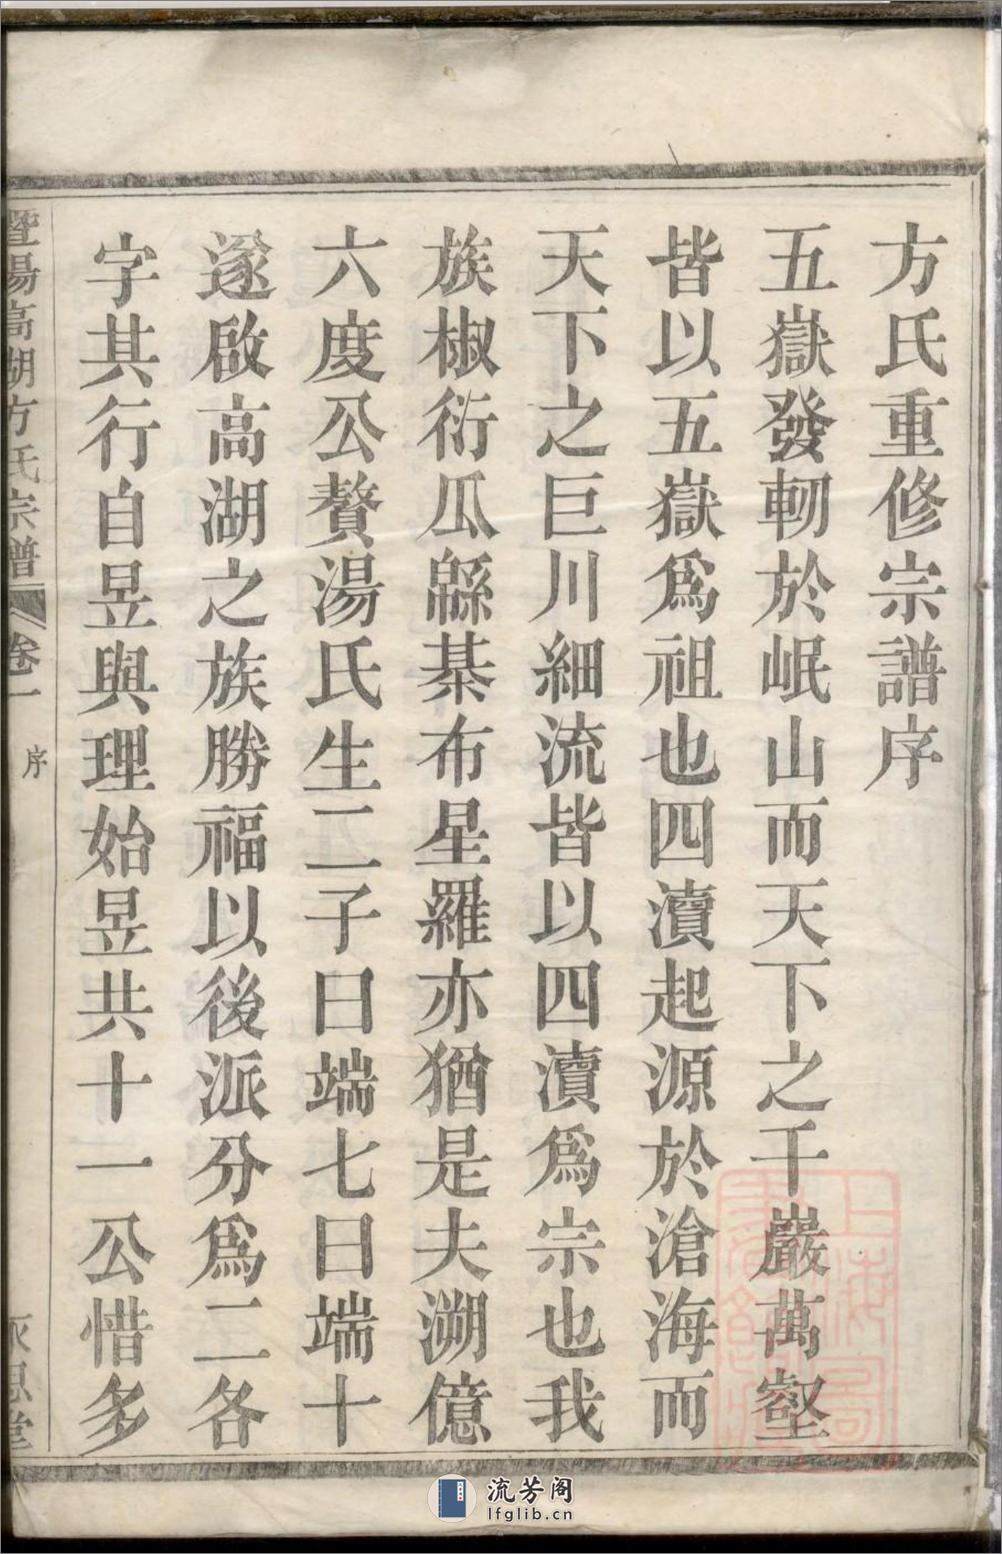 方氏重修宗譜序
五嶽發軔於岷山而天下之千巖萬壑
皆以五嶽爲祖也四瀆起源於滄海而
天下之巨川細流皆以四瀆爲宗也我
族椒衍瓜緜棊布星羅亦猶是夫溯億
六度公贅湯氏生二子曰端七曰端十
遂啟高湖之族勝福以後派分爲二各
字其行自昱與理始昱共十一公惜多
暨陽高湖方氏宗譜
卷一
序
永思堂
上海圖書館藏
流芳阁
lfglib.cn